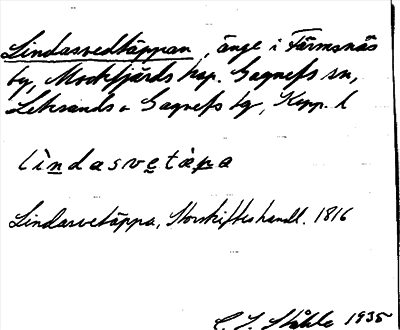 Lindasvedtäppan, änge i Färmsnäs
by, Mockfjärds kap. Gagnefs sn,
Leksands o Gagnefs tg, Kopp. l
lìndasvetàpa
Lindasvetäppa, Storskifteshandl. 1816
C. I. Ståhle 1935